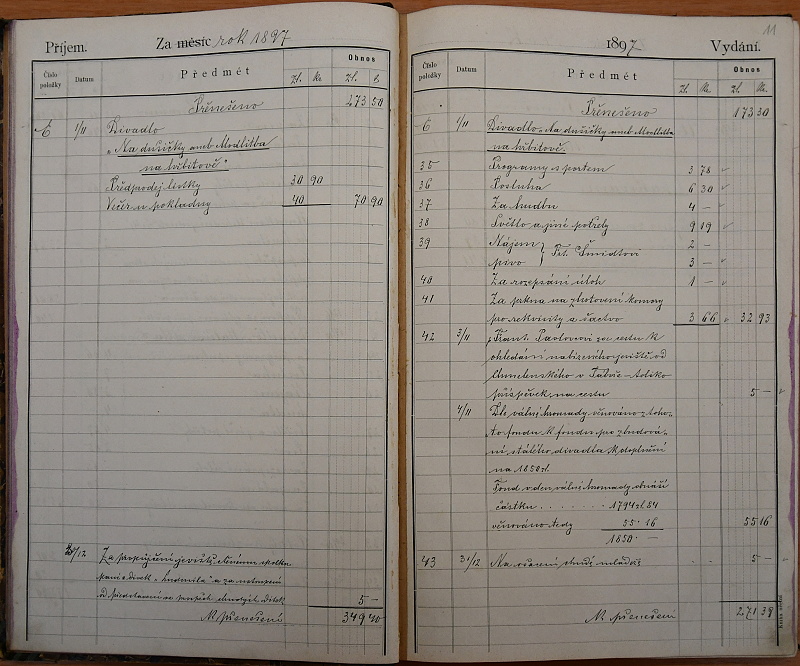 Příjem. Za měsíc rok 1897
Číslo položky Datum Předmět Zl. Kr. Obnos Zl. k.
Přenešeno 273 50
E 1/11 Divadlo
„Na dušičky aneb Modlitba
na hřbitově"
Předprodej lístky 30 90
Večer u pokladny 40 70 90
31/12 Za propůjčení jeviště
"Ludmila" a za
od představení ve prospěch dítek 5 —
K přenešení 349 40
11
1897 Vydání.
Číslo položky Datum Předmět Zl. Kr. Obnos Zl. Kr.
Přenešeno 173 30
E 1/11 Divadlo „Na dušičky aneb Modlitba
na hřbitově".
35 Programy s portem 3 78
36 Posluha 6 30
37 Za hudbu 4 —
38 Světlo a jiné potřeby 9 19
39 Nájem 2 —
pivo } Fr. Šmidtovi 3 —
40 Za rozepsání úloh 1 —
41 Za prkna na zhotovení komory
pro rekvisity a šatstvo 3 66 32 93
42 3/11 Frant. Pastorovi za cestu k
ohledání nabízeného jeviště od
Chmelenského v
příspěvek na cestu 5 —
4/11 Dle valné hromady věnováno z toho-
to fondu k fondu pro zbudová-
ní stálého divadla k doplnění
na 1850 zl.
Fond v den valné hromady obnáší
částku . . . . . . 1794 zl 84
věnováno tedy 55 16 55 16
1850 —
43 31/12 Na ošacení chudé mládeže . . 5 —
K přenešení 271 39